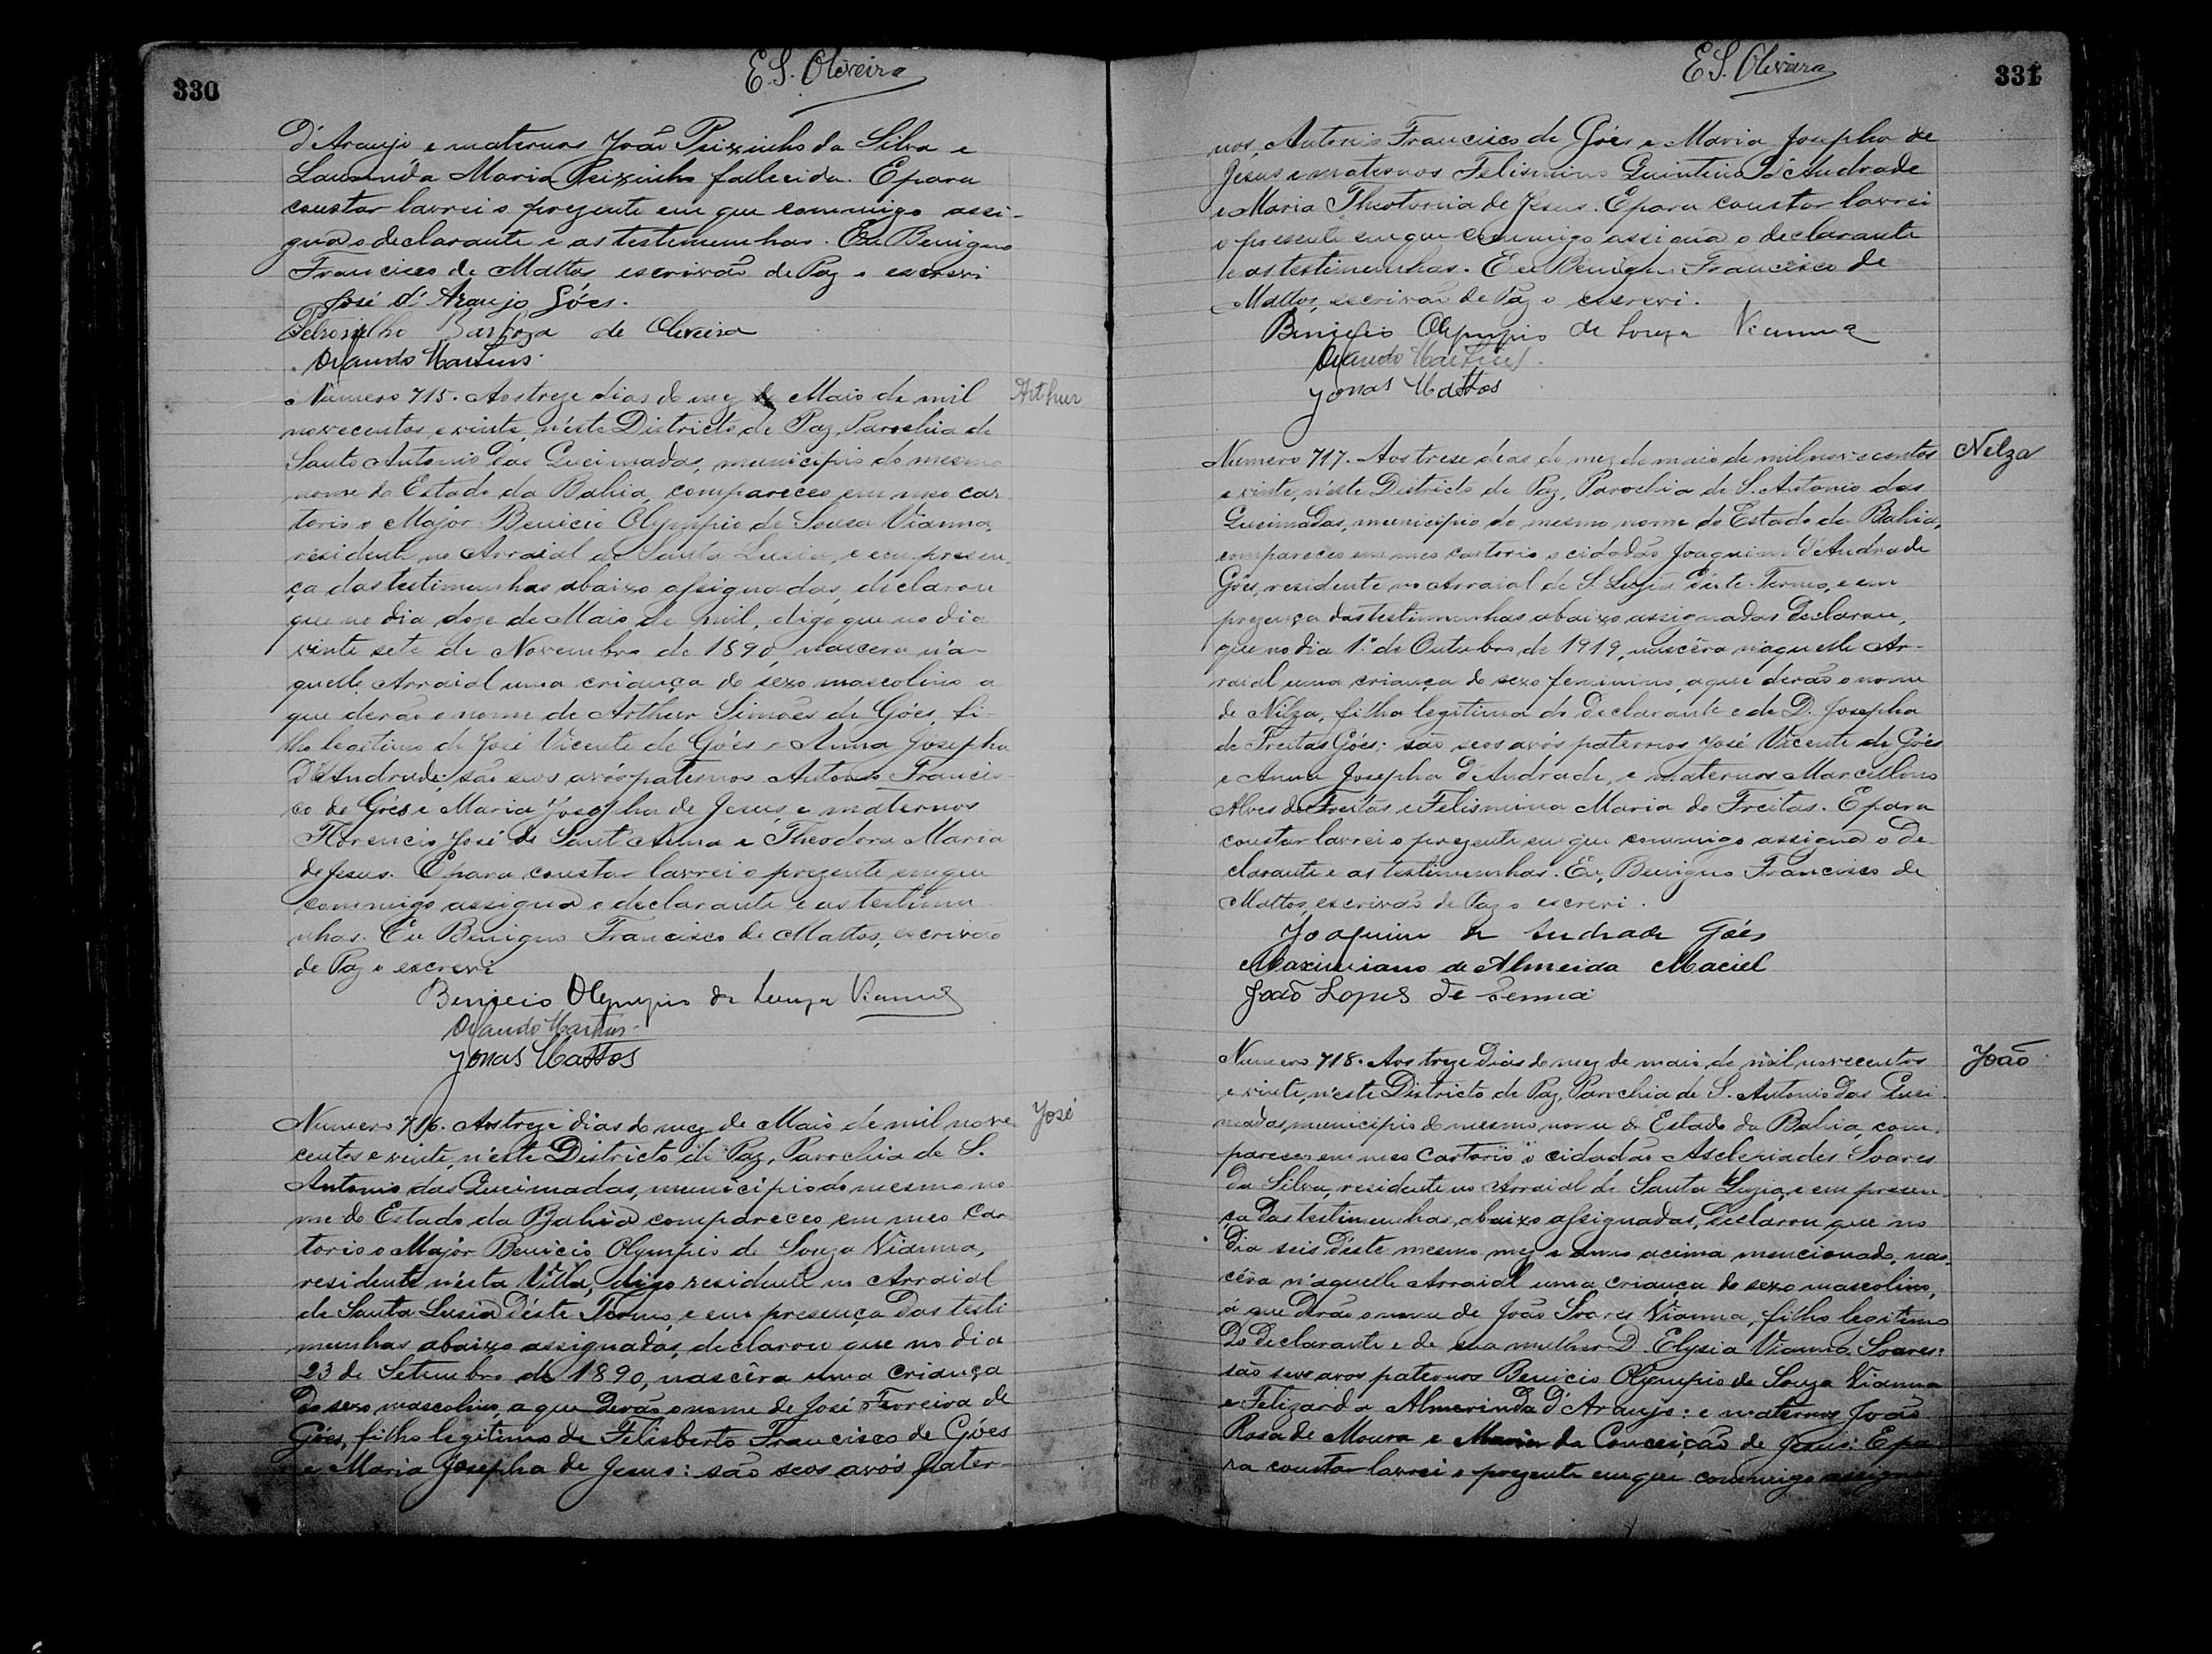 330
E.S. Oliveira
D'Araujo e maternos João Peixinho da Silva e
Laurinda Maria Peixinho fallecida. E para
constar lavrei o prezente em que commigo assi-
gna o declarante e as testimunhas. Eu Benigno
Francisco de Mattos escrivão de Paz o escrevi
José d'Araujo Góes.
Petronilho Barboza de Oliveira
Orlando Martins.
Numero 715. Aos treze dias do mez de Maio de mil
Arthur
novecentos e vinte, n'este Districto de Paz, Parochia de
Santo Antonio das Queimadas, municipio do mesmo
nome do Estado da Bahia, compareceo em meo car
torio o Major Benicio Olympio de Sousa Vianna,
residente no Arraial de Santa Lusia, e em presen-
ça das testimunhas abaixo assignadas, declarou
que no dia doze de Maio de mil, digo que no dia
vinte sete de Novembro de 1890, nascera n'a-
quelle Arraial uma criança do sexo mascolino a
que derão o nome de Arthur Simões de Góes, fi-
lho legitimo de José Vicente de Góes e Anna Josepha
D'Andrade; são seos avós paternos Antonio Francis-
co de Góes e Maria Josepha de Jesus, e maternos
Florencio José de Sant'Anna e Theodora Maria
de Jesus. E para constar lavrei o prezente em que
commigo assigna o declarante e as testimu
nhas. Eu Benigno Francisco de Mattos, escrivão
de Paz o escrevi
Benicio Olympio de Souza Vianna
Orlando Martins.
Jonas Mattos
Numero 716. Aos treze dias do mez de Maio de mil nove
José
centos e vinte, n'este Districto de Paz, Parochia de S.
Antonio das Queimadas, municipio do mesmo no
me do Estado da Bahia compareceo em meo Car
torio o Major Benicio Olympio de Souza Vianna,
residente n'esta Villa, digo residente no Arraial
de Santa Lusia d'este Termo, e em presença das testi
munhas abaixo assignadas, declarou que no dia
23 de Setembro de 1890, nascêra uma criança
do sexo mascolino a que derão o nome de José Ferreira de
Góes, filho legitimo de Felisberto Francisco de Góes
e Maria Josepha de Jesus: são seos avós pater-
331
E.S. Oliveira
nos, Antonio Francisco de Góes e Maria Josepha de
Jesus e maternos Felismino Quintino d'Andrade
e Maria Theotonia de Jesus. E para constar lavrei
o presente em que commigo assigna o declarante
e as testimunhas. Eu Benigno Francisco de
Mattos, escrivão de Paz o escrevi.
Benicio Olympio de Souza Vianna
Orlando Martins.
Jonas Mattos
Numero 717. Aos trese dias do mez de maio de mil novecentos
Nelza
e vinte, n'este Districto de Paz, Parochia de S. Antonio das
Queimadas, municipio do mesmo nome do Estado da Bahia,
compareceo em meo cartorio o cidadão Joaquim d'Andrade
Góes, residente no Arraial de S. Luzia d'este Termo, e em
prezença das testimunhas abaixo assignadas declarou,
que no dia 1º de Outubro de 1919, nascêra n'aquelle Ar-
raial uma criança do sexo feminino, a que derão o nome
de Nilza, filha legitima do declarante e de D. Josepha
de Freitas Góes: são seos avós paternos José Vicente de Góes
e Anna Josepha d'Andrade, e maternos Marcellino
Alves de Freitas e Felismina Maria de Freitas. E para
constar lavrei o prezente em que commigo assigna o de-
clarante e as testimunhas. Eu, Benigno Francisco de
Mattos, escrivão de Paz o escrevi.
Joaquim de Andrade Góes
Maximiano de Almeida Maciel
João Lopes de Senna
Numero 718. Aos treze dias do mez de maio de mil novecentos
João
e vinte, n'este Districto de Paz, Parochia de S. Antonio das Quei
madas, municipio do mesmo nome do Estado da Bahia, com-
pareceo em meo Cartorio o cidadão Ascleriades Soares
da Silva, residente no Arraial de Santa Luzia, e em presen-
ça das testimunhas, abaixo assignadas, declarou que no
dia seis d'este mesmo mez e anno acima mencionado, nas-
cêra n'aquelle Arraial uma criança do sexo mascolino,
á que derão o nome de João Soares Vianna, filho legitimo
do declarante e de sua mulher D. Elysia Vianna Soares:
são seos avos paternos Benicio Olympio de Souza Vianna
e Felizarda Almerinda D'Araujo: e maternos João
Rosa de Moura e Maria da Conceição de Jesus: E pa
ra constar lavrei o prezente em que commigo assigna